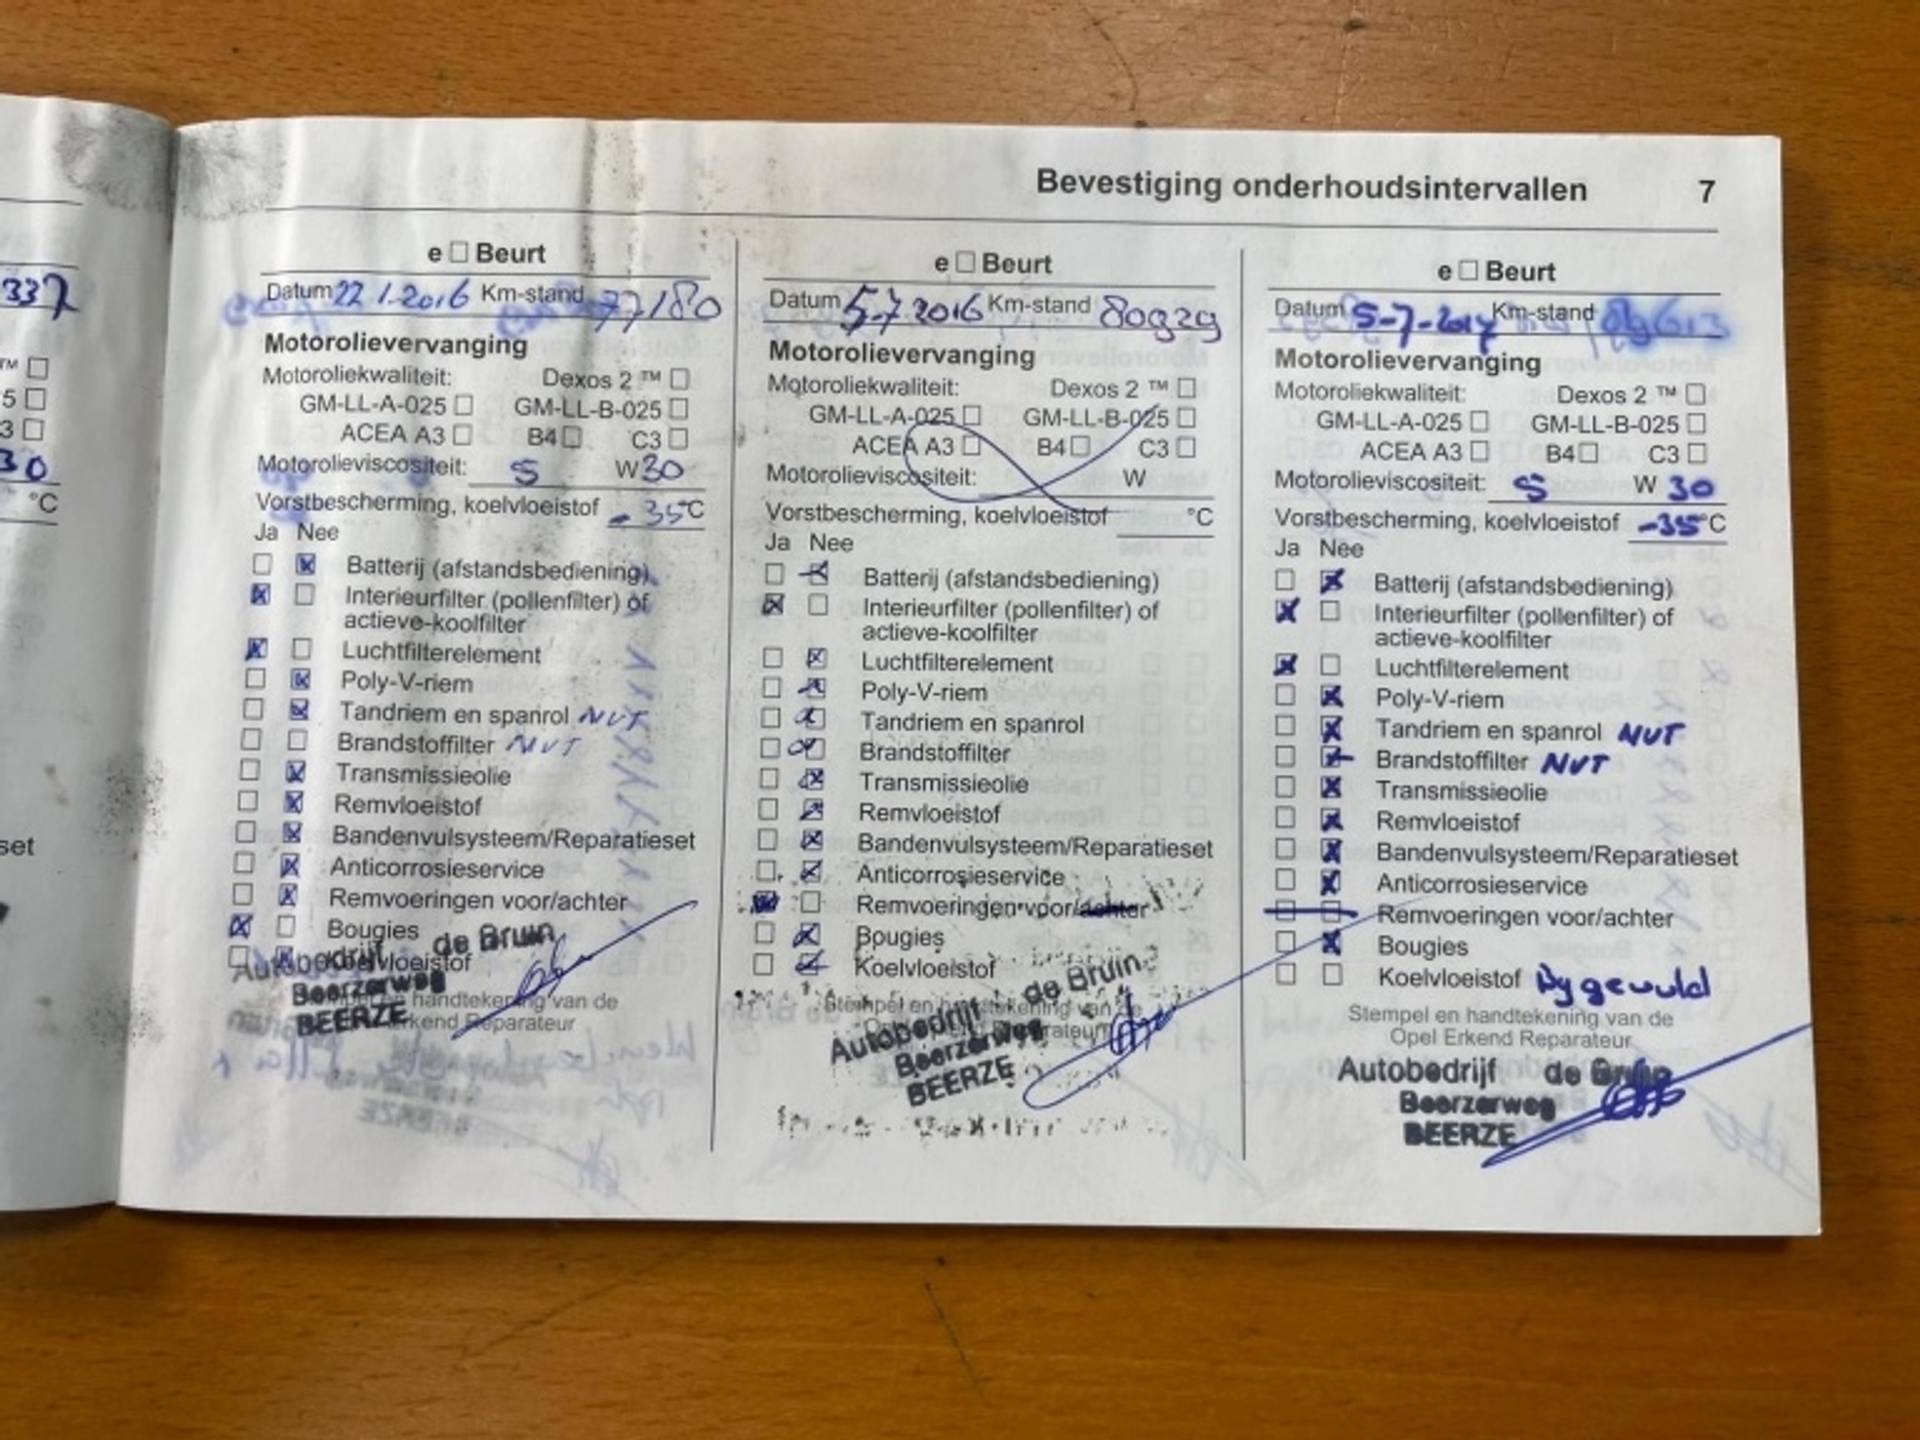 337
™ □
5 □
3 □
30
°C
set
Bevestiging onderhoudsintervallen 7
e □ Beurt
Datum 22 1.2016 Km-stand 77180
Motorolievervanging
Motoroliekwaliteit: Dexos 2 ™ □
GM-LL-A-025 □ GM-LL-B-025 □
ACEA A3 □ B4 □ C3 □
Motorolieviscositeit: 5 W 30
Vorstbescherming, koelvloeistof - 35°C
Ja Nee
Batterij (afstandsbediening)
Interieurfilter (pollenfilter) of
actieve-koolfilter
Luchtfilterelement
Poly-V-riem
Tandriem en spanrol NVT
Brandstoffilter NVT
Transmissieolie
Remvloeistof
Bandenvulsysteem/Reparatieset
Anticorrosieservice
Remvoeringen voor/achter
Bougies
Koelvloeistof
Stempel en handtekening van de
Opel Erkend Reparateur
Autobedrijf de Bruin
Beerzerweg
BEERZE
e □ Beurt
Datum 5-7 2016 Km-stand 80929
Motorolievervanging
Motoroliekwaliteit: Dexos 2 ™ □
GM-LL-A-025 □ GM-LL-B-025 □
ACEA A3 □ B4 □ C3 □
Motorolieviscositeit: W
Vorstbescherming, koelvloeistof °C
Ja Nee
Batterij (afstandsbediening)
Interieurfilter (pollenfilter) of
actieve-koolfilter
Luchtfilterelement
Poly-V-riem
Tandriem en spanrol
Brandstoffilter
Transmissieolie
Remvloeistof
Bandenvulsysteem/Reparatieset
Anticorrosieservice
Remvoeringen voor/achter
Bougies
Koelvloeistof
Stempel en handtekening van de
Opel Erkend Reparateur
Autobedrijf de Bruin
Beerzerweg
BEERZE
e □ Beurt
Datum 5-7-2017 Km-stand
Motorolievervanging
Motoroliekwaliteit: Dexos 2 ™ □
GM-LL-A-025 □ GM-LL-B-025 □
ACEA A3 □ B4 □ C3 □
Motorolieviscositeit: 5 W 30
Vorstbescherming, koelvloeistof -35°C
Ja Nee
Batterij (afstandsbediening)
Interieurfilter (pollenfilter) of
actieve-koolfilter
Luchtfilterelement
Poly-V-riem
Tandriem en spanrol NVT
Brandstoffilter NVT
Transmissieolie
Remvloeistof
Bandenvulsysteem/Reparatieset
Anticorrosieservice
Remvoeringen voor/achter
Bougies
Koelvloeistof Bygevuld
Stempel en handtekening van de
Opel Erkend Reparateur
Autobedrijf de Bruin
Beerzerweg
BEERZE